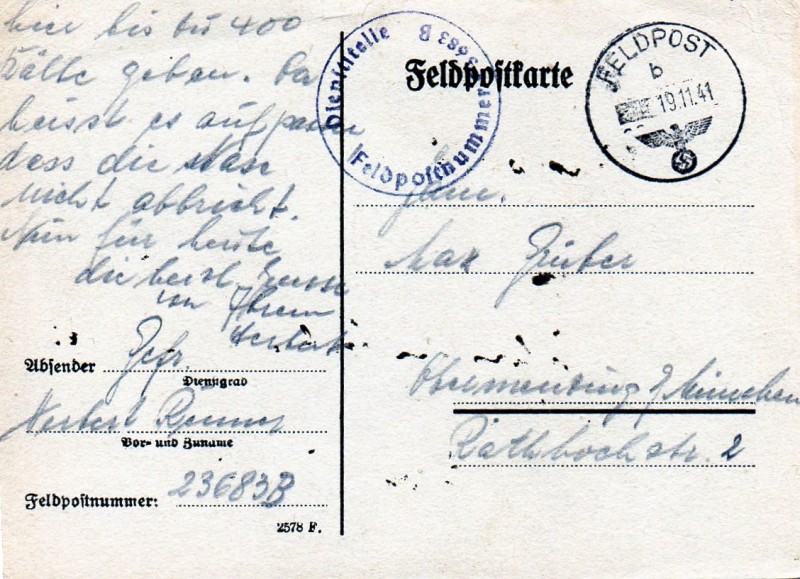 hier bis zu 40°
Kälte geben. Da
heisst es aufpassen
dass die Nase
nicht abbricht.
Nun für heute
die herzl. Grüsse
von Ihrem
Herbert
Absender Gefr.
Dienstgrad
Herbert
Vor- und Zuname
Feldpostnummer: 23683B
2578 F.
Dienststelle
Feldpostnummer 3683 B
Feldpostkarte
FELDPOST
b
19.11.41
Max Gruber
Obermenzing / München
str. 2